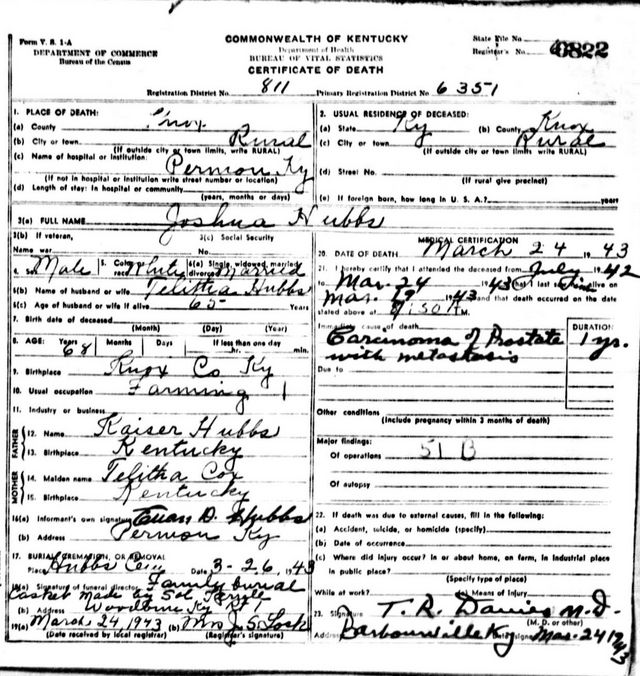 Form V. S. 1-A
DEPARTMENT OF COMMERCE
Bureau of the Census
COMMONWEALTH OF KENTUCKY
Department of Health
BUREAU OF VITAL STATISTICS
CERTIFICATE OF DEATH
State File No.
Registrar's No. 6822
Registration District No. 811 Primary Registration District No. 6351
1. PLACE OF DEATH:
(a) County Knox
(b) City or town Rural
(If outside city or town limits, write RURAL)
(c) Name of hospital or institution: Permon, Ky
(If not in hospital or institution write street number or location)
(d) Length of stay: In hospital or community
(years, months or days)
2. USUAL RESIDENCE OF DECEASED:
(a) State Ky (b) County Knox
(c) City or town Rural
(If outside city or town limits write RURAL)
(d) Street No.
(If rural give precinct)
(e) If foreign born, how long in U. S. A.? years
3(a) FULL NAME Joshua Hubbs
3(b) If veteran, 3(c) Social Security
Name war No.
4. Male 5. Color or race White 6(a) Single, widowed, married, divorced Married
6(b) Name of husband or wife Telitha Hubbs
6(c) Age of husband or wife if alive 65 Years
7. Birth date of deceased
(Month) (Day) (Year)
8. AGE: Years 68 Months Days If less than one day
hr. min.
9. Birthplace Knox Co Ky
10. Usual occupation Farming
11. Industry or business
FATHER
12. Name Kaiser Hubbs
13. Birthplace Kentucky
MOTHER
14. Maiden name Telitha Cox
15. Birthplace Kentucky
16(a) Informant's own signature Evan D. Hubbs
(b) Address Permon Ky
17. BURIAL, CREMATION, OR REMOVAL
Place Hubbs Cem Date 3-26, 1943
18(a) Signature of funeral director Family burial
Casket made by Sol
(b) Address Woodbine Ky Rt 1
19(a) March 24 1943 (b) Mrs J. S. Lock
(Date received by local registrar) (Registrar's signature)
MEDICAL CERTIFICATION
20. DATE OF DEATH March 24 1943
21. I hereby certify that I attended the deceased from July 1942
to Mar. 24 1943 that I last saw him alive on
Mar. 19 1943 and that death occurred on the date
stated above at 9:50 A M.
Immediate cause of death
Carcinoma of Prostate
with metastasis
DURATION
1 yr.
Due to
Other conditions
(Include pregnancy within 3 months of death)
Major findings:
Of operations 51 B
Of autopsy
22. If death was due to external causes, fill in the following:
(a) Accident, suicide, or homicide (specify)
(b) Date of occurrence
(c) Where did injury occur? in or about home, on farm, in industrial place
in public place?
(Specify type of place)
While at work? (e) Means of injury
23. Signature T. R. Davies M.D.
(M. D. or other)
Address Barbourville Ky Date signed Mar. 24 1943